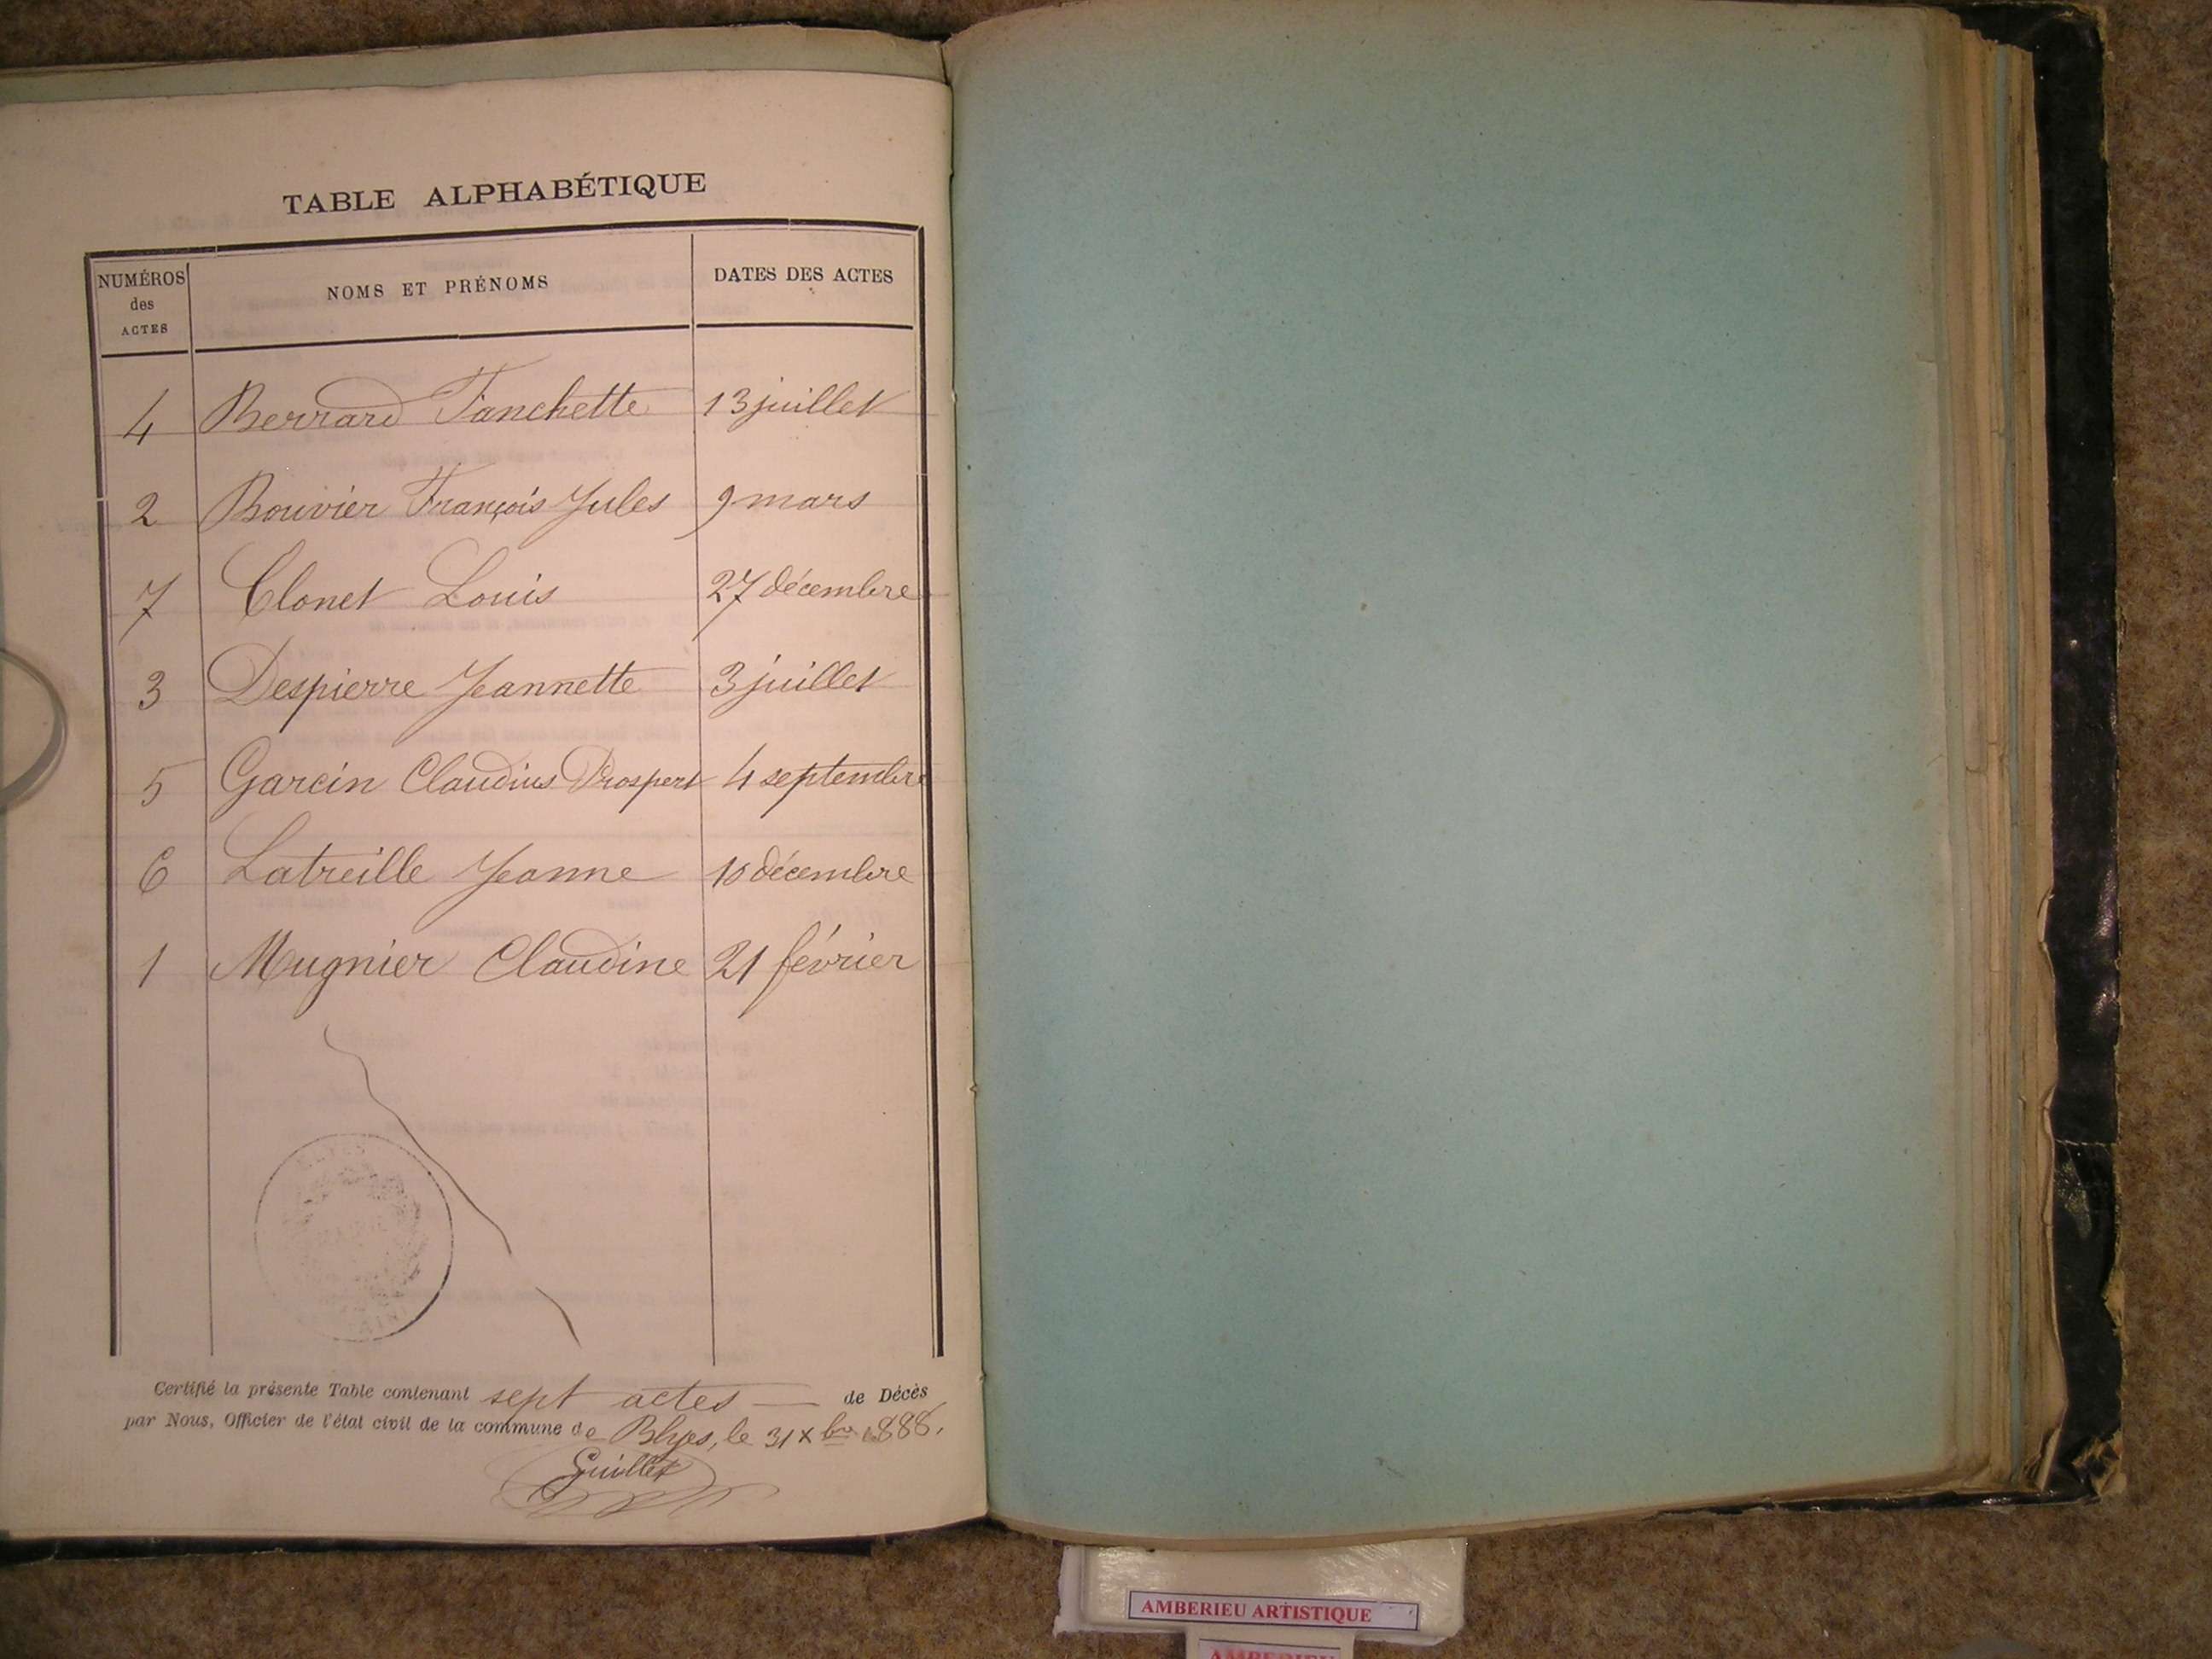 TABLE ALPHABÉTIQUE
NUMÉROS
des
ACTES
NOMS ET PRÉNOMS
DATES DES ACTES
4 Berrard Fanchette 13 juillet
2 Bouvier François Jules 9 mars
7 Clonet Louis 27 décembre
3 Despierre Jeannette 3 juillet
5 Garcin Claudius Prospert 4 septembre
6 Latreille Jeanne 10 décembre
1 Mugnier Claudine 21 février
Certifié la présente Table contenant sept actes — de Décès
par Nous, Officier de l'état civil de la commune de Blyes, le 31 Xbre 1888.
Guillet
AMBERIEU ARTISTIQUE
AMBERIEU